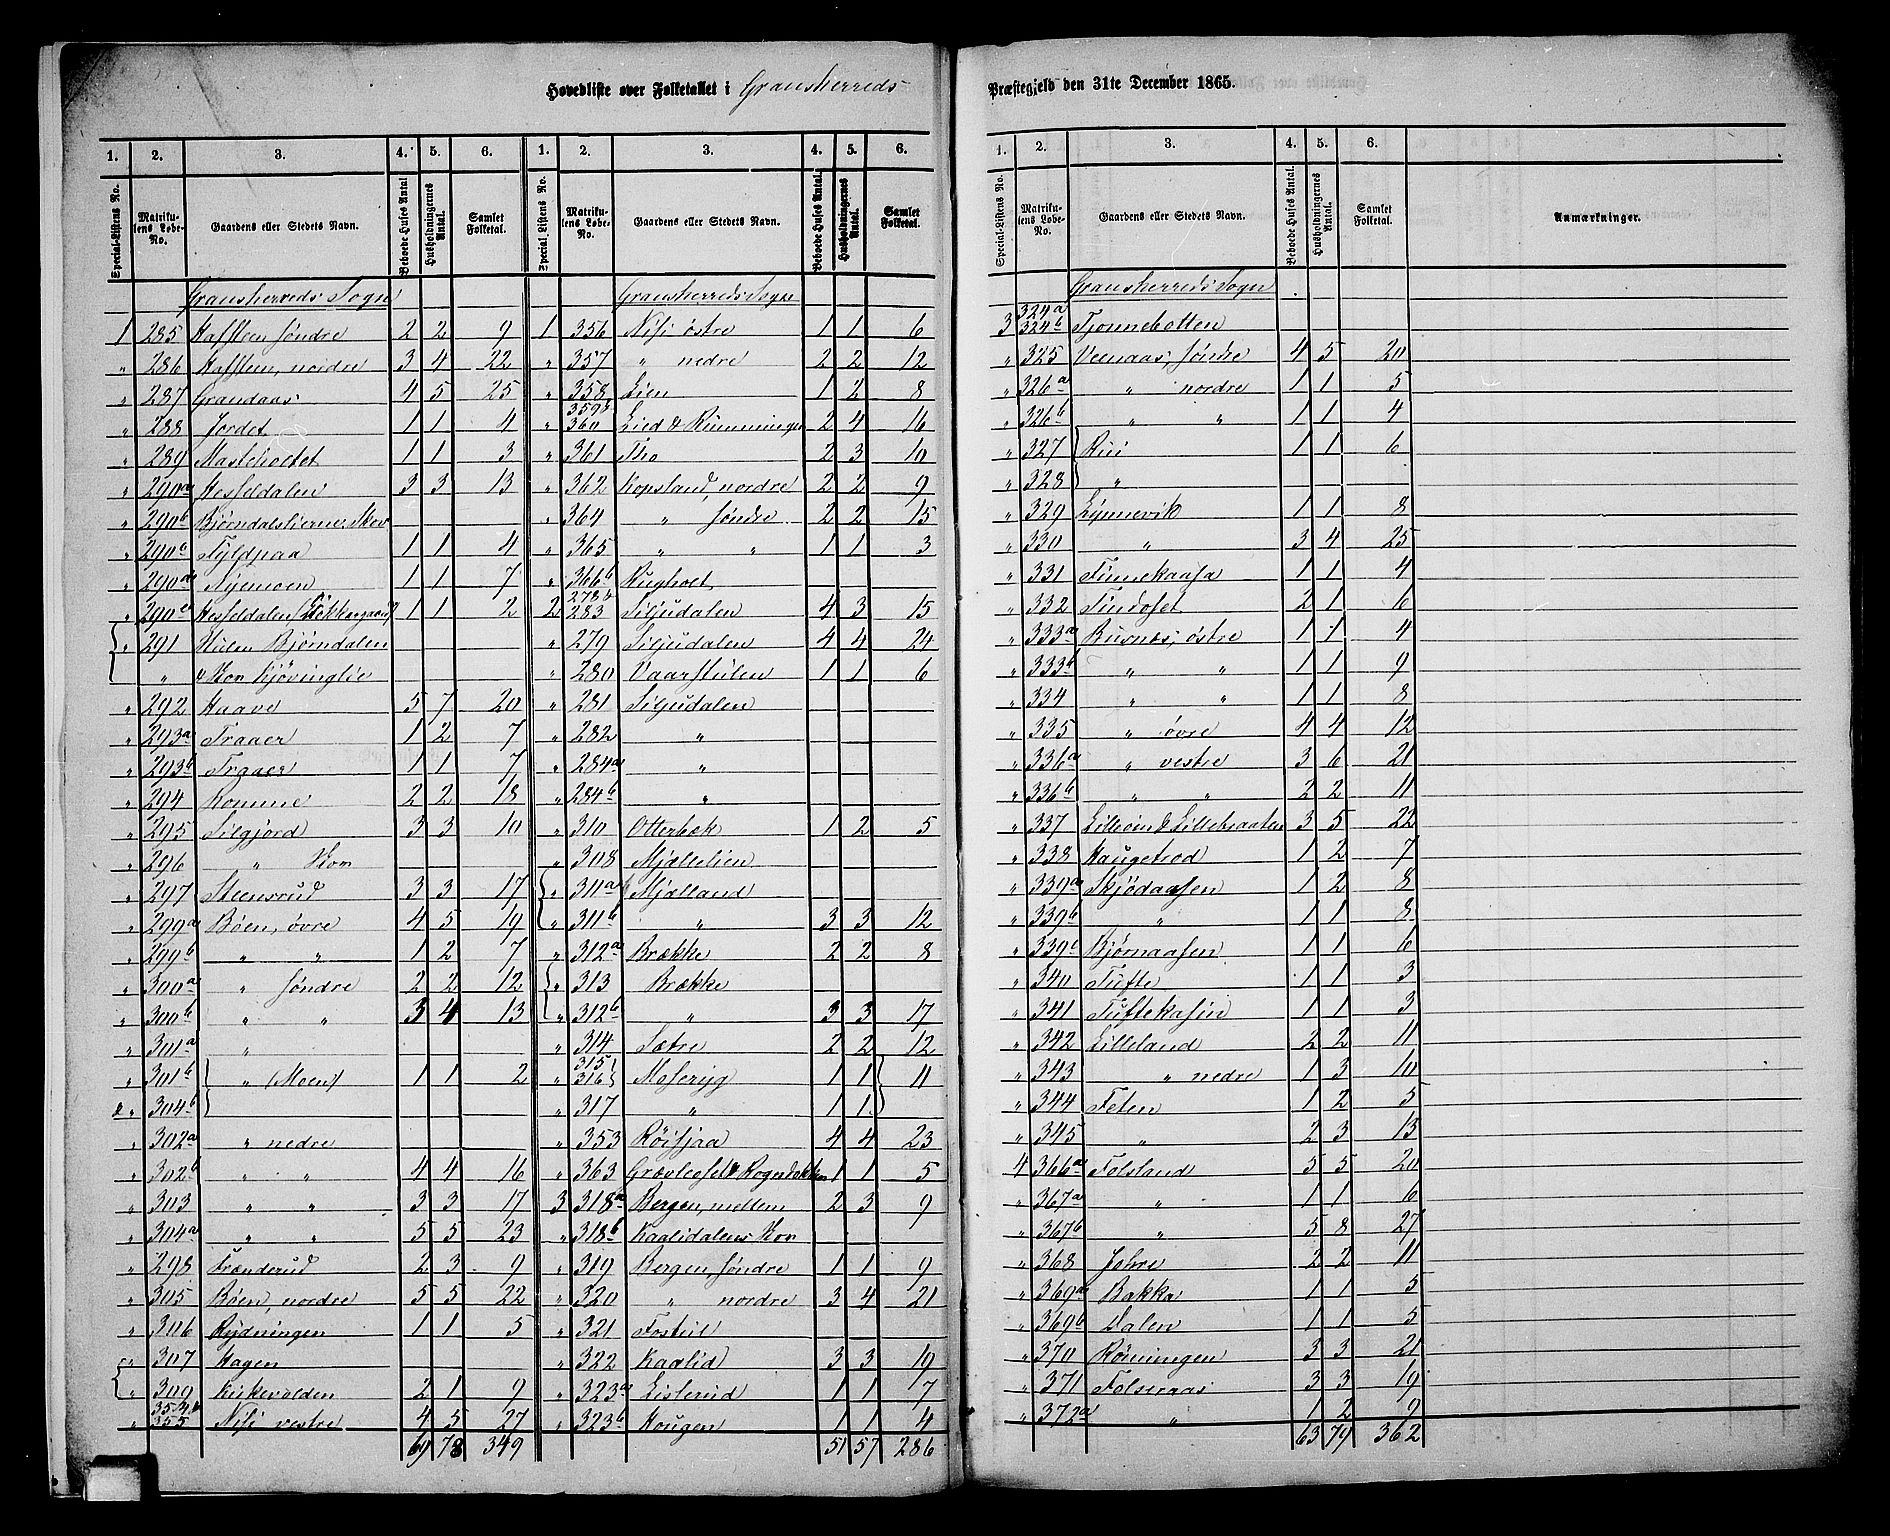 Hovedliste over Folketallet i Gransherreds
Præstegjeld den 31te December 1865.
1. 2. 3. 4. 5. 6. 1. 2. 3. 4. 5. 6.
Special-Listens No. Matrikulens Løbe-No. Gaardens eller Stedets Navn. Beboede Huses Antal Husholdningernes Antal. Samlet Folketal. Special Listens No. Matrikulens Løbe-No. Gaardens eller Stedets Navn. Beboede Huses Antal. Husholdningernes Antal. Samlet Folketal.
Gransherreds Sogn
1 285 Haffteen søndre 2 2 9
" 286 Haffteen, nordre 3 4 22
" 287 Grandaas 4 5 25
" 288 Jordet 1 1 4
" 289 Masteholtet 1 1 3
" 290a Hesteldalen 3 3 13
" 290b Bjørndalstiernes Skov
" 290b 1 1 4
" 290a Nyemoen 1 1 7
" 290c Hesteldalen 1 1 2
" 291 Bjørndalen
"
" 292 Haave 5 7 20
" 293a Traaer 1 2 7
" 293b Traaer 1 1 7
" 294 Romme 2 2 18
" 295 Silgjord 3 3 10
" 296 "
" 297 Steensrud 3 3 17
" 299a Bøen, øvre 4 5 19
" 299b " " 1 2 7
" 300a " søndre 2 2 12
" 300b " " 3 4 13
" 301a "
" 301b " (Moen) 1 1 2
" 304b
" 302a " nedre
" 302b " " 4 4 16
" 303 " " 3 3 17
" 304a " " 5 5 23
" 298 Frønderud 2 3 9
" 305 Bøen, nordre 5 5 22
" 306 Rydningen 1 1 5
" 307 Hagen
" 309 Kirkevolden 2 1 9
" 355 Nisi vestre 4 5 27
69 78 349
Gransherreds Sogn
1 356 Nisi østre 1 1 6
" 357 " nedre 2 2 12
" 358 Lien 1 2 8
" 359b 360 Lied & Rumminge 2 4 16
" 361 Tho 2 3 10
" 362 Kopsland, nordre 2 2 9
" 364 " søndre 2 2 15
" 365 " " 1 1 3
" 366b Rugholt
2 278b 283 Siljudalen 4 3 15
" 279 Siljudalen 4 4 24
" 280 Vaarstulen 1 1 6
" 281 Siljudalen
" 282 "
" 284a "
" 284b "
" 310 Otterbæk 1 2 5
" 308 Mjellelien
" 311a Mjølland
" 311b " 3 3 12
" 312a Brække 2 2 8
" 313 Brække
" 312b " 3 3 17
" 314 Sætre 2 2 12
" 315 316 Moseryg 1 1 11
" 317 " 1 1
" 353 Røisjaa 4 4 23
" 363 1 1 5
3 318a Bergen, mellem 2 3 9
" 318b
" 319 Bergen, søndre 1 1 9
" 320 " nordre 3 4 21
" 321 Fostul
" 322 Kaalid 3 3 19
" 323a Listerud 1 1 7
" 323b Hougen 1 1 4
51 57 286
1. 2. 3. 4. 5. 6.
Special-Listens No. Matrikulens Løbe-No. Gaardens eller Stedets Navn. Beboede Huses Antal. Husholdningernes Antal. Samlet Folketal. Anmærkninger.
Gransherreds Sogn
3 324a 324b Tjonnebotten
" 325 Veenaas, søndre 4 5 20
" 326a " nordre 1 1 5
" 326b " " 1 1 4
" 327 Rui 1 1 6
" 328 "
" 329 Lynnevik 1 1 8
" 330 " 3 4 25
" 331 Finnekaasa 1 1 4
" 332 Tindoset 2 1 6
" 333a Busnæs, østre 1 1 4
" 333b " " 1 1 9
" 334 " " 1 1 8
" 335 " øvre 4 4 12
" 336a " vestre 3 6 21
" 336b " " 2 2 11
" 337 3 5 22
" 338 Haugetrod 1 2 7
" 339a Skjødaasen 1 2 8
" 339b " 1 1 8
" 339c Bjørnaasen 1 1 6
" 340 Tufte 1 1 3
" 341 Tuftekasin 1 1 3
" 342 Lilleland 2 2 11
" 343 " nedre 1 3 10
" 344 Feten 1 2 5
" 345 " 2 3 13
4 366a Folsland 5 5 20
" 367a " 1 1 6
" 367b " 5 8 27
" 368 Johre 2 2 11
" 369a Bakka 1 1 5
" 369b Dalen 1 1 5
" 370 Rønningen 3 3 21
" 371 Folseraas 3 3 19
" 372a " 1 2 9
63 79 362